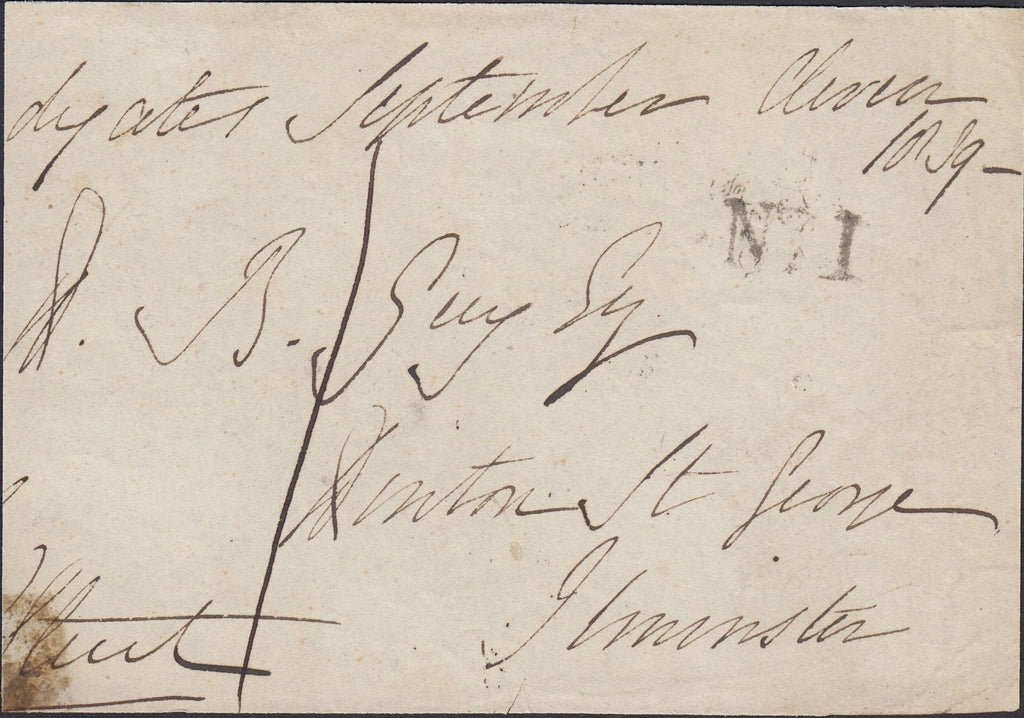 dygates September Eleven
1839 –
No. 1
H. B. Guy Esq
Hinton St George
Ilminster